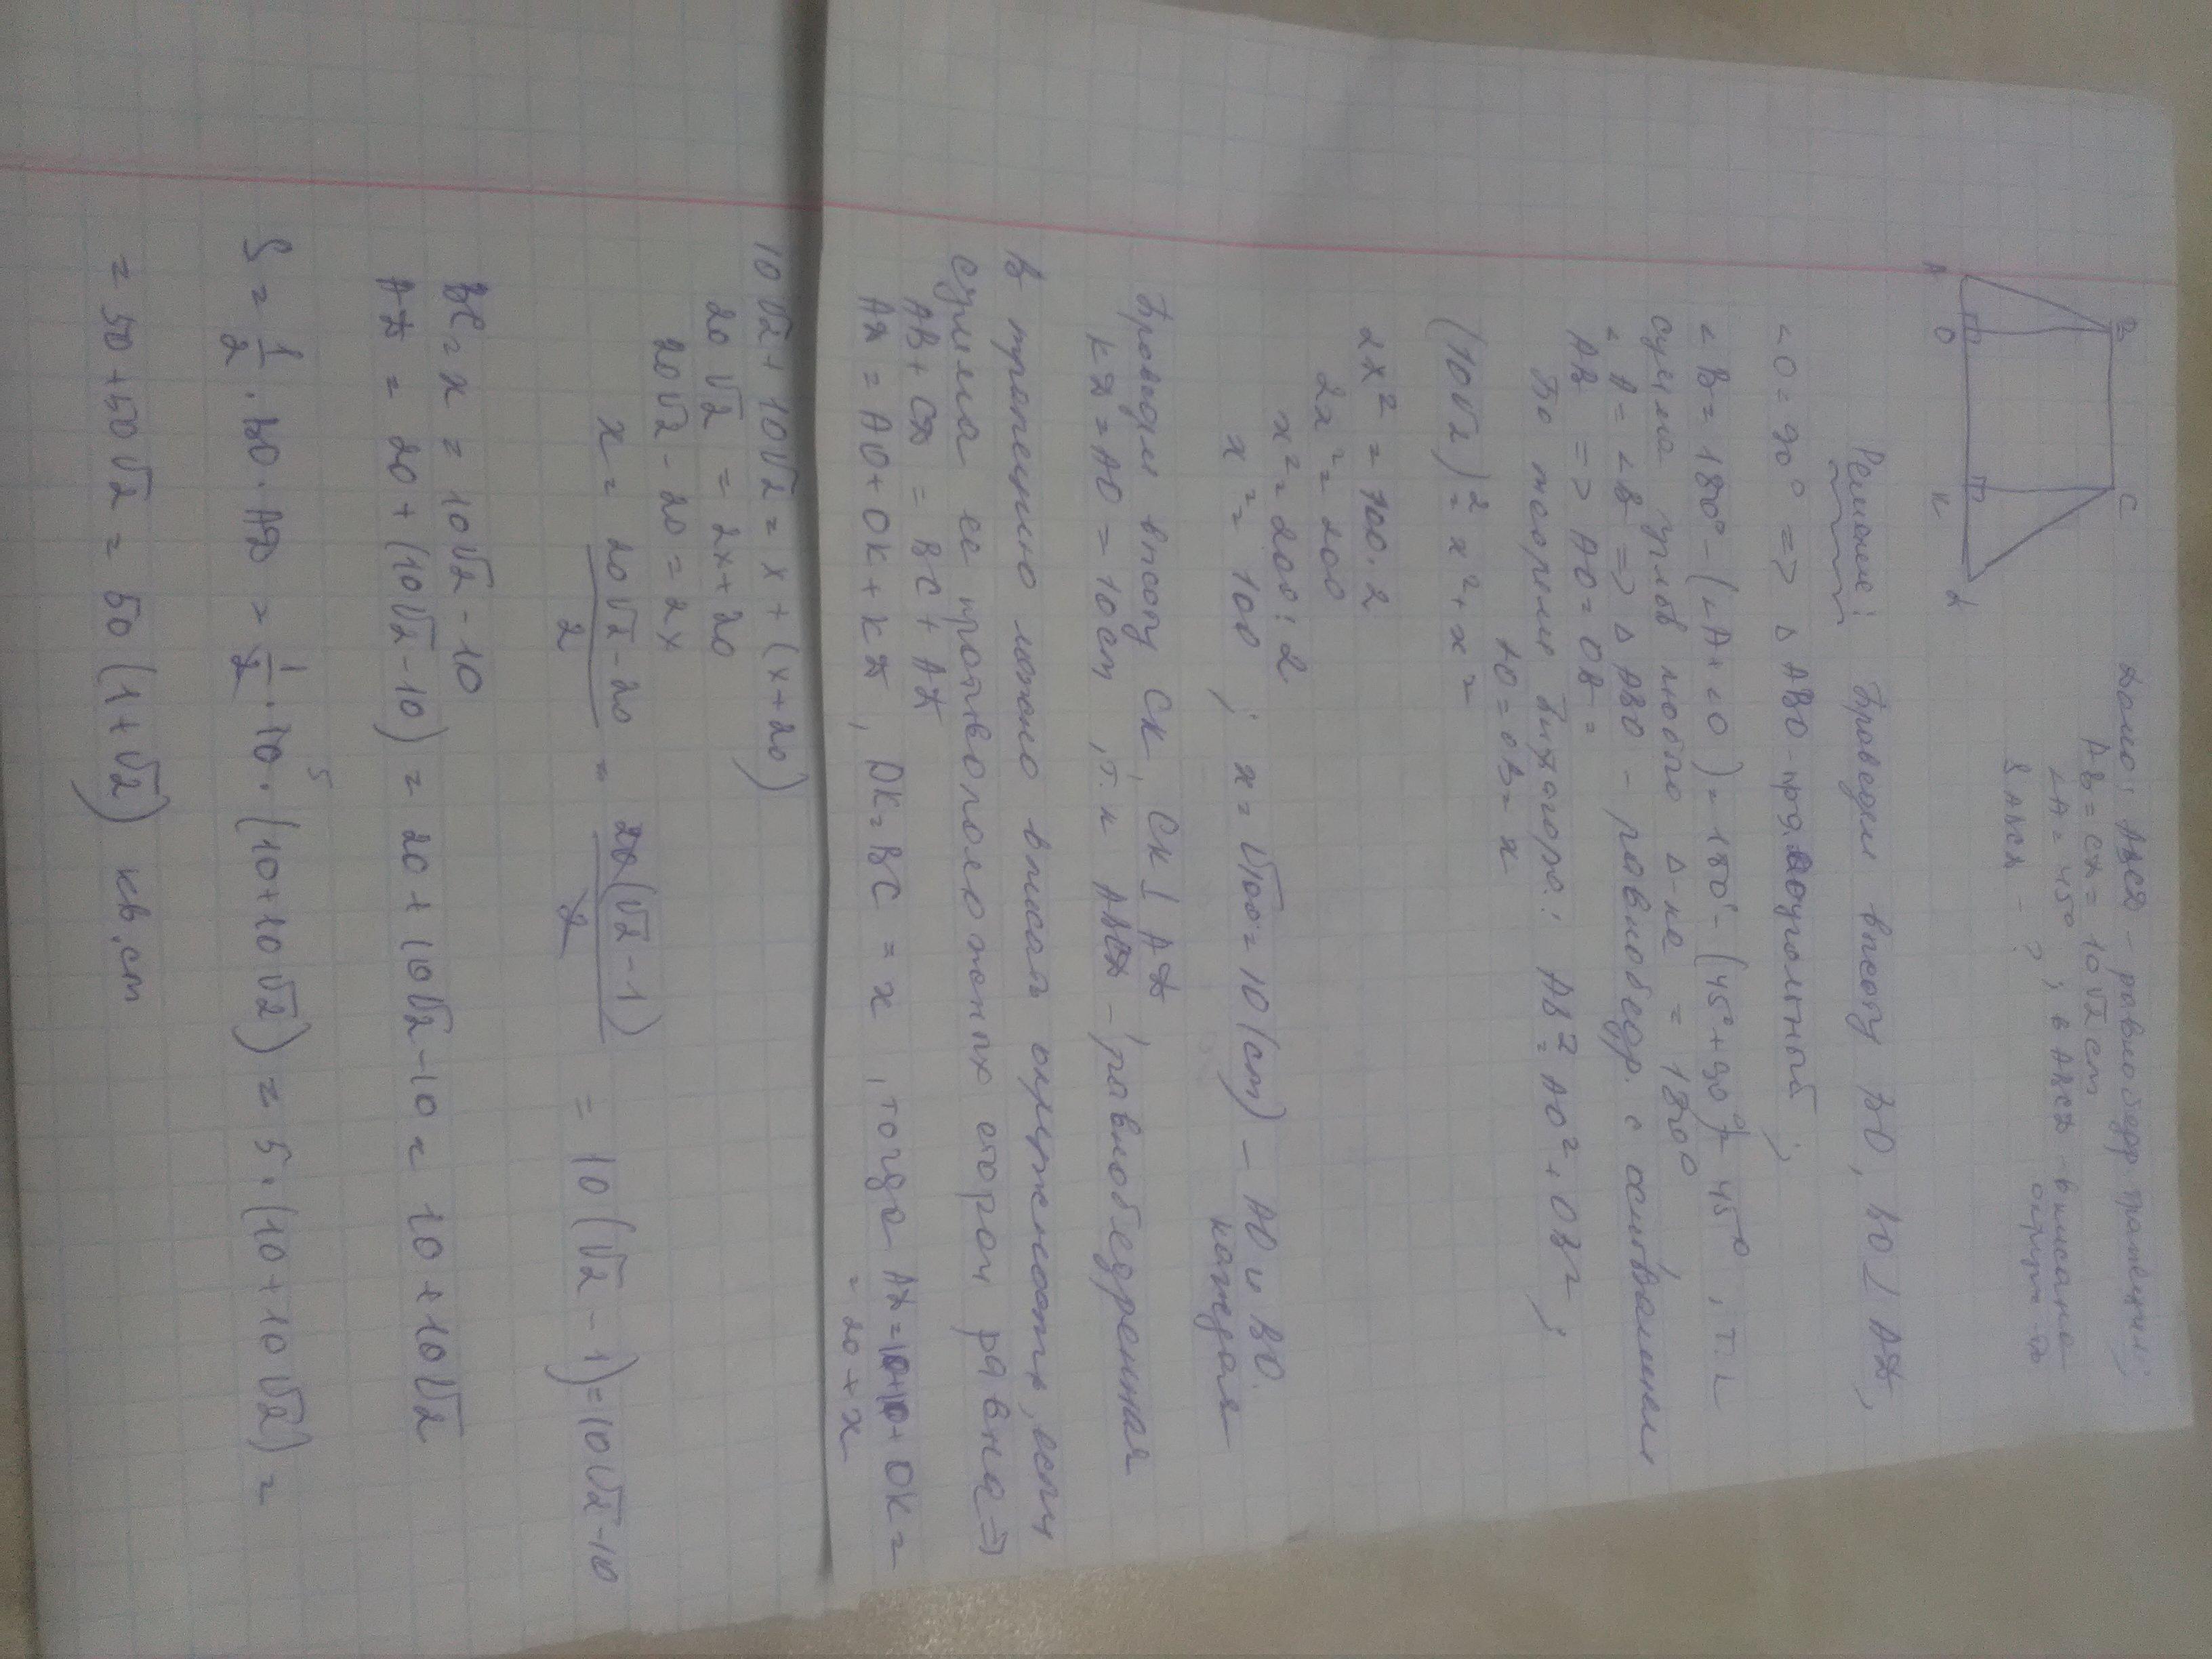 B C
A O K D
Дано: ABCD - равнобедр трапеция;
AB = CD = 10√2 cm
∠A = 45°; в ABCD - вписана окруж-ть
SABCD - ?
Решение: Проведем высоту BO, BO ⊥ AD,
∠O = 90° => △ ABO - прямоугольный;
∠B = 180° - (∠A + ∠O) = 180° - (45° + 90°) = 45°, т.к
сумма углов любого △-ка = 180°
∠A = ∠B => △ ABO - равнобедр. с основанием
AB => AO = OB =
По теореме Пифагора: AB² = AO² + OB²;
AO = OB = x
(10√2)² = x² + x²
2x² = 100·2
2x² = 200
x² = 200:2
x² = 100; x = √100 = 10 (cm) - AO и BO.
катеты
Проводим высоту CK, CK ⊥ AD
KD = AO = 10 cm, т.к ABCD - равнобедренная
В трапецию можно вписать окружность, если
сумма ее противоположных сторон равна =>
AB + CD = BC + AD
AD = AO + OK + KD, OK = BC = x, тогда AD = 10+10+OK =
= 20 + x
10√2 + 10√2 = x + (x+20)
20√2 = 2x + 20
20√2 - 20 = 2x
x = 20√2 - 20 / 2 = 20(√2 - 1) / 2 = 10(√2 - 1) = 10√2 - 10
BC = x = 10√2 - 10
AD = 20 + (10√2 - 10) = 20 + 10√2 - 10 = 10 + 10√2
S = 1/2 · BO · AD = 1/2 · 10 · (10 + 10√2) = 5 · (10 + 10√2) =
5
= 50 + 50√2 = 50 (1 + √2) кв.cm